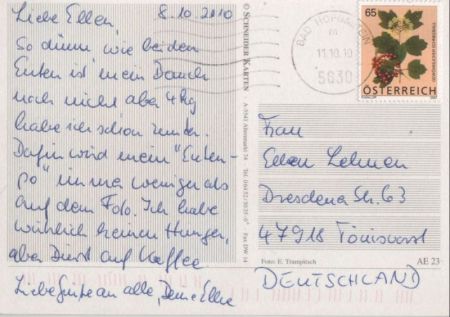 Liebe Ellen, 8.10.2010
So dünn wie bei den
Enten ist mein Bauch
noch nicht aber 4 kg
habe ich schon runter.
Dafür wird mein "Enten-
po" immer weniger als
auf dem Foto. Ich habe
wirklich keinen Hunger,
aber Durst auf Kaffee
Liebe Grüße an alle, Deine Elke
© SCHNEIDER KARTEN
A-5541 Altenmarkt 54
BAD HOFGASTEIN
11.10.10
5630
65
ÖSTERREICH
Frau
Ellen Lehmen
Dresdener Str. 63
47918 Tönisvorst
DEUTSCHLAND
Foto: E. Trampitsch
AE 23